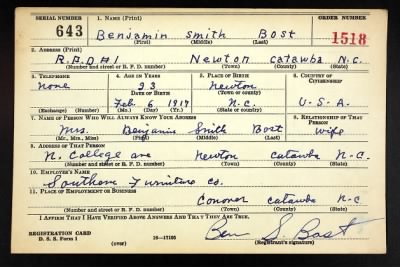 SERIAL NUMBER 1. NAME (Print) ORDER NUMBER
643 Benjamin Smith Bost 1518
(First) (Middle) (Last)
2. ADDRESS (Print)
R.F.D #1 Newton Catawba N.C.
(Number and street or R. F. D. number) (Town) (County) (State)
3. TELEPHONE 4. AGE IN YEARS 5. PLACE OF BIRTH 6. COUNTRY OF CITIZENSHIP
none 23 Newton
DATE OF BIRTH (Town or county)
Feb 6 1917 N.C. U-S-A.
(Exchange) (Number) (Mo.) (Day) (Yr.) (State or country)
7. NAME OF PERSON WHO WILL ALWAYS KNOW YOUR ADDRESS 8. RELATIONSHIP OF THAT PERSON
Mrs. Benjamin Smith Bost wife
(Mr., Mrs., Miss) (First) (Middle) (Last)
9. ADDRESS OF THAT PERSON
N. College ave Newton Catawba N-C.
(Number and street or R. F. D. number) (Town) (County) (State)
10. EMPLOYER'S NAME
Southern Furniture Co.
11. PLACE OF EMPLOYMENT OR BUSINESS
Conover Catawba N.C
(Number and street or R. F. D. number) (Town) (County) (State)
I AFFIRM THAT I HAVE VERIFIED ABOVE ANSWERS AND THAT THEY ARE TRUE.
REGISTRATION CARD
D. S. S. Form 1 (over) 16—17105 Ben S. Bost
(Registrant's signature)